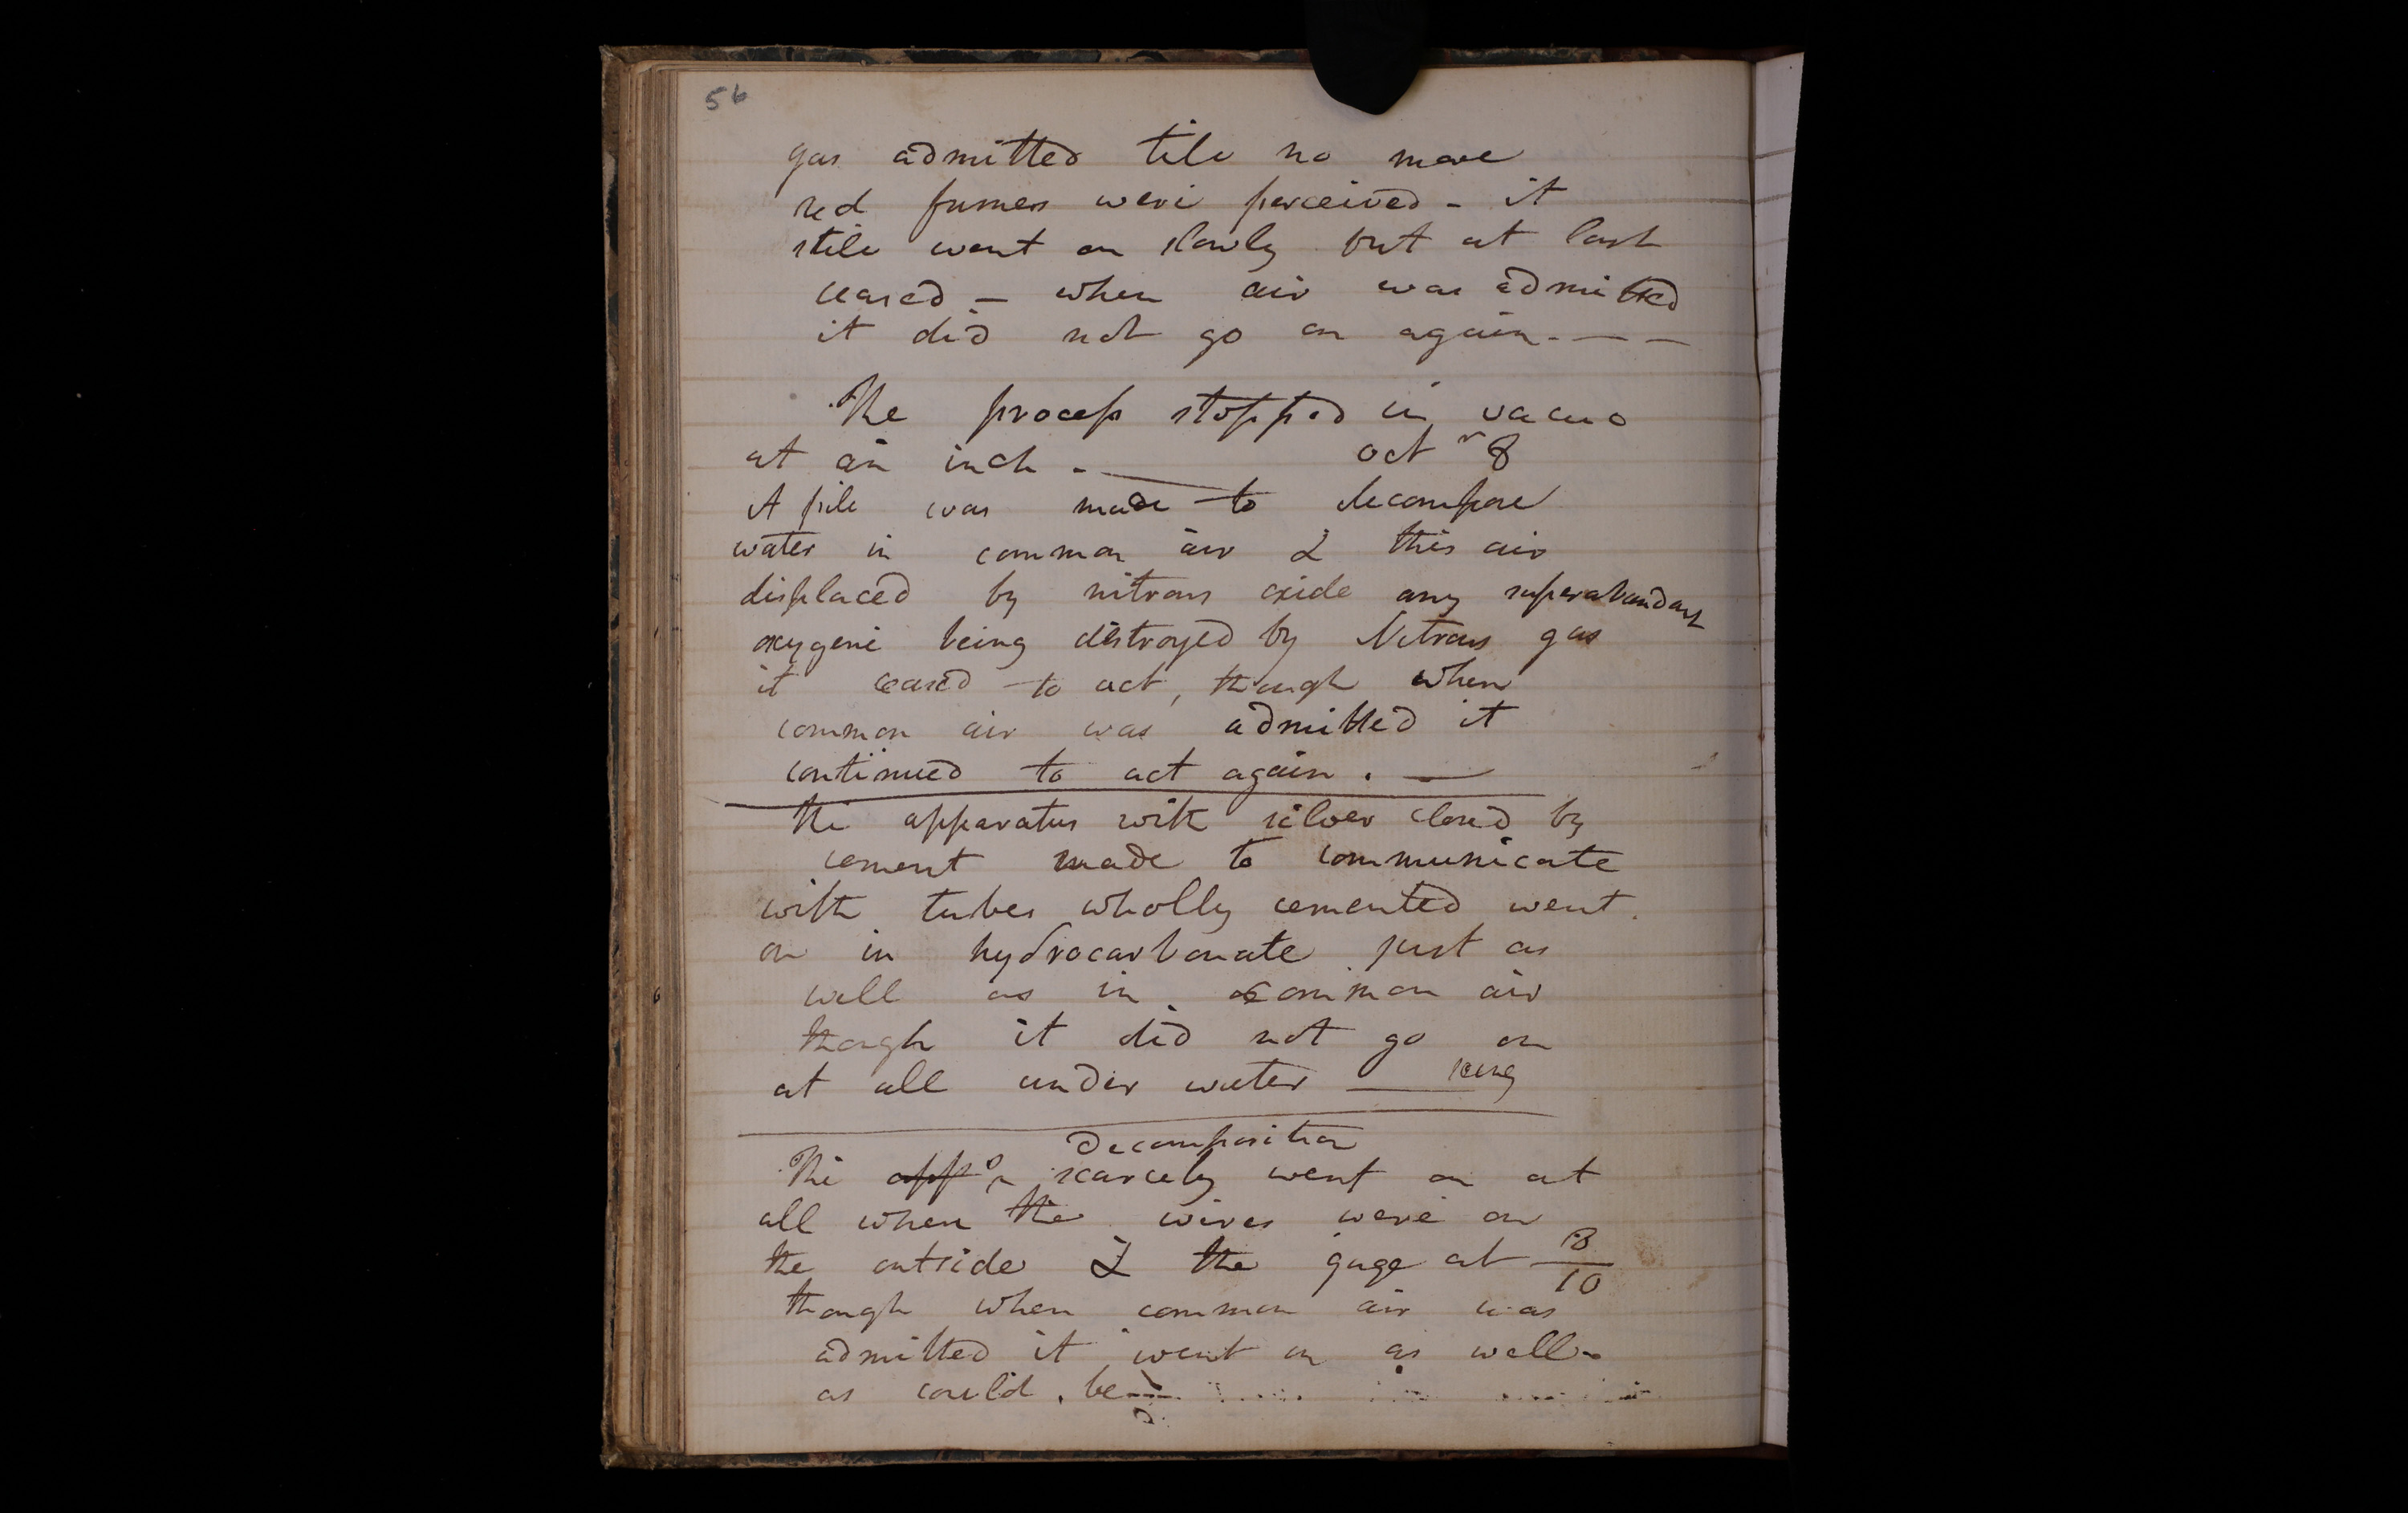 56
gas admitted till no more
red fumes were perceived - it
still went on slowly but at last
ceased — when air was admitted
it did not go on again. — —
The process stopped in vacuo
at an inch - — octr 8
A pile was made to decompose
water in common air & this air
displaced by nitrous oxide any superabundant
oxygene being destroyed by Nitrous gas
it ceased to act, though when
common air was admitted it
continued to act again. —
The apparatus with silver closed by
cement made to communicate
with tubes wholly cemented went
on in hydrocarbonate just as
well as in common air
though it did not go on
at all under water —
decomposition
The appo ^ scarcely went on at
all when the wires were on
the outside & the gage at 8/10
though when common air was
admitted it went on as well
as could be